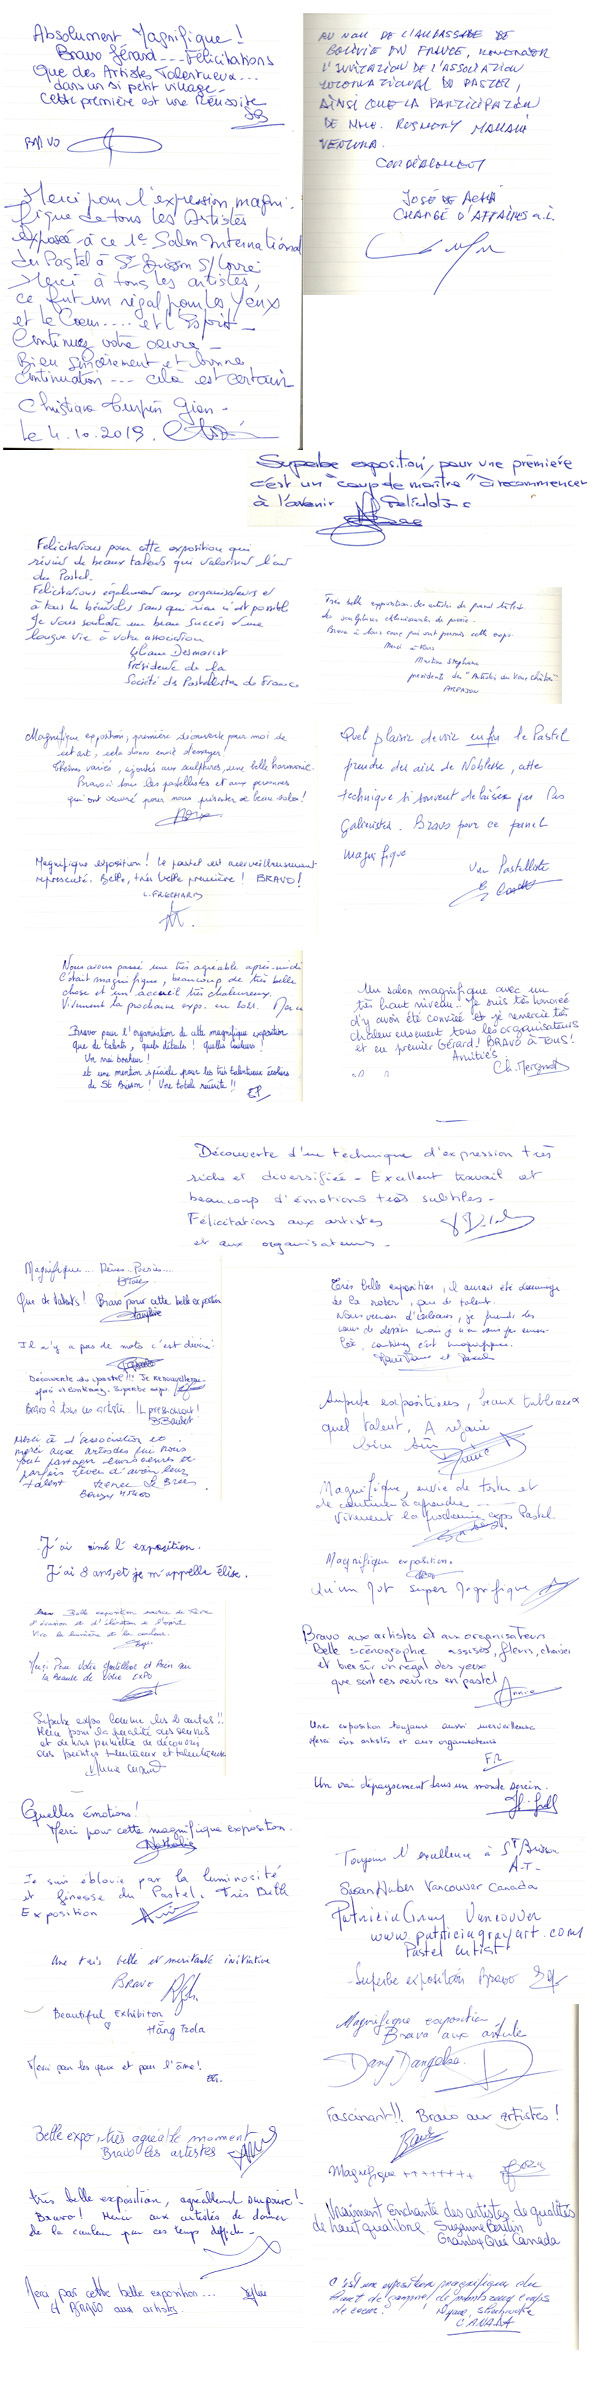 Absolument Magnifique !
Bravo Gérard --- Félicitations
Que des Artistes Talentueux...
dans un si petit village -
cette première est une Réussite
BRAVO
Merci pour l'expression magni-
fique de tous les Artistes
exposés à ce 1er Salon International
du Pastel à St Brisson S/Loire
Merci à tous les artistes,
ce fut un régal pour les Yeux
et le Coeur.... et l'Esprit -
Continuez votre oeuvre -
Bien sincèrement et bonne
continuation --- cela est certain
Christiane Gien -
Le 4.10.2019.
AU NOM DE L'AMBASSADE DE
BOLIVIE EN FRANCE, REMERCIER
L'INVITATION DE L'ASSOCIATION
INTERNATIONAL DU PASTEL,
AINSI QUE LA PARTICIPATION
DE MME. ROSMERY MAMANI
VENTURA.
CORDIALEMENT
JOSÉ DE ACHÁ
CHARGÉ D'AFFAIRES a.i.
Superbe exposition, pour une première
c'est un "coup de maître" à recommencer
à l'avenir Félicitations
Félicitations pour cette exposition qui
réunit de beaux talents qui valorisent l'art
du Pastel.
Félicitations également aux organisateurs et
à tous les bénévoles sans qui rien n'est possible
Je vous souhaite un beau succès et une
longue vie à votre association
Liliane Desmarest
Présidente de la
Société des Pastellistes de France
Très belle exposition. Des artistes de grand talent
des sculptures
Bravo à tous ceux qui ont permis cette expo.
Merci à vous
Martine Stephane
présidente des "Artistes du Vieux Château"
ARPAJON
Magnifique exposition, première découverte pour moi de
cet art, cela donne envie d'essayer !
Thèmes variés, ajoutés aux sculptures, une belle harmonie.
Bravo à tous les pastellistes et aux personnes
qui ont oeuvré pour nous présenter ce beau salon !
Quel plaisir de voir enfin le Pastel
prendre des airs de Noblesse, cette
technique si souvent délaissée par les
Galeristes. Bravo pour ce panel
magnifique
Une Pastelliste
Magnifique exposition ! Le pastel est merveilleusement
représenté. Belle, très belle première ! BRAVO !
Nous avons passé une très agréable après-midi
C'était magnifique, beaucoup de très belles
chose et un accueil très chaleureux.
Vivement la prochaine expo. en 2021. Merci
Bravo pour l'organisation de cette magnifique exposition
Que de talents, quels détails ! Quelles couleurs !
Un vrai bonheur !
et une mention spéciale pour les très talentueux écoliers
de St Brisson ! Une totale réussite !!
Un salon magnifique avec un
très haut niveau.. Je suis très honorée
d'y avoir été conviée et je remercie très
chaleureusement tous les organisateurs
et en premier Gérard ! BRAVO à TOUS !
Amitiés
Découverte d'une technique d'expression très
riche et diversifiée - Excellent travail et
beaucoup d'émotions très subtiles -
Félicitations aux artistes
et aux organisateurs -
Magnifique... Rêves.. Poésies...
Que de talents ! Bravo pour cette belle exposition
Il n'y a pas de mots c'est divin !
Découverte du pastel !!! Je renouvellerai
Superbe expo.
Bravo à tous ces artistes. IMpressionnant !
Merci à l'association et
merci aux artistes qui nous
font partager leurs oeuvres et
parfois rêver d'avoir leur
talent
J'ai aimé l'exposition.
J'ai 8 ans et je m'appelle Élise.
Belle exposition
d'évasion et d'élévation de l'esprit
Vive la lumière et la couleur.
Merci Pour votre Gentillesse et
la Beauté de Votre EXPO
Superbe expo comme les autres !!
Merci pour la qualité des oeuvres
et de nous permettre de découvrir
des peintres talentueux et talentueuses
Très belle exposition, il aurait été dommage
de la rater, que de talent.
Nous venons d'Orléans, je prends des
cours de dessin mais je n'en suis pas encore
là, continuez c'est magnifique.
Superbe expositions, beaux tableaux
quel talent, A refaire
bien sûr
Magnifique, envie de toucher et
de continuer à apprendre ---
Vivement la prochaine expo Pastel
Magnifique exposition.
Qu'un Mot Super Magnifique
Bravo aux artistes et aux organisateurs
Belle scénographie assises, fleurs, chaises
et bien sûr un régal des yeux
que sont ces oeuvres en pastel
Annie
Une exposition toujours aussi merveilleuse
Merci aux artistes et aux organisateurs
F.R
Un vrai dépaysement dans un monde serein.
Quelles émotions !
Merci pour cette magnifique exposition.
Nathalie
Je suis éblouie par la luminosité
et finesse du Pastel. Très Belle
Exposition
Une très belle et méritante initiative
BRAVO
Beautiful Exhibition
Hằng
Merci pour les yeux et pour l'âme !
Toujours l'excellence à St Brisson
A.T-
Susan Huber Vancouver Canada
Patricia Gray Vancouver
www.patriciagrayart.com
Pastel Artist
- Superbe exposition Bravo
Magnifique exposition
Bravo aux artistes
Dany Dangelser
Fascinant !! Bravo aux artistes !
Magnifique ++++++++
Belle expo, très agréable moment
BRAVO les artistes
très belle exposition, agréablement surprise !
Bravo ! Merci aux artistes de donner
de la couleur par ces temps difficiles -
Merci pour cette belle exposition...
et BRAVO aux artistes.
Vraiment Enchanté des artistes de qualités
de haut qualibre. Suzanne Bertin
Granby Qué Canada
C'est une exposition magnifique du
haut de gamme ! de nombreux coups
de coeur !
CANADA